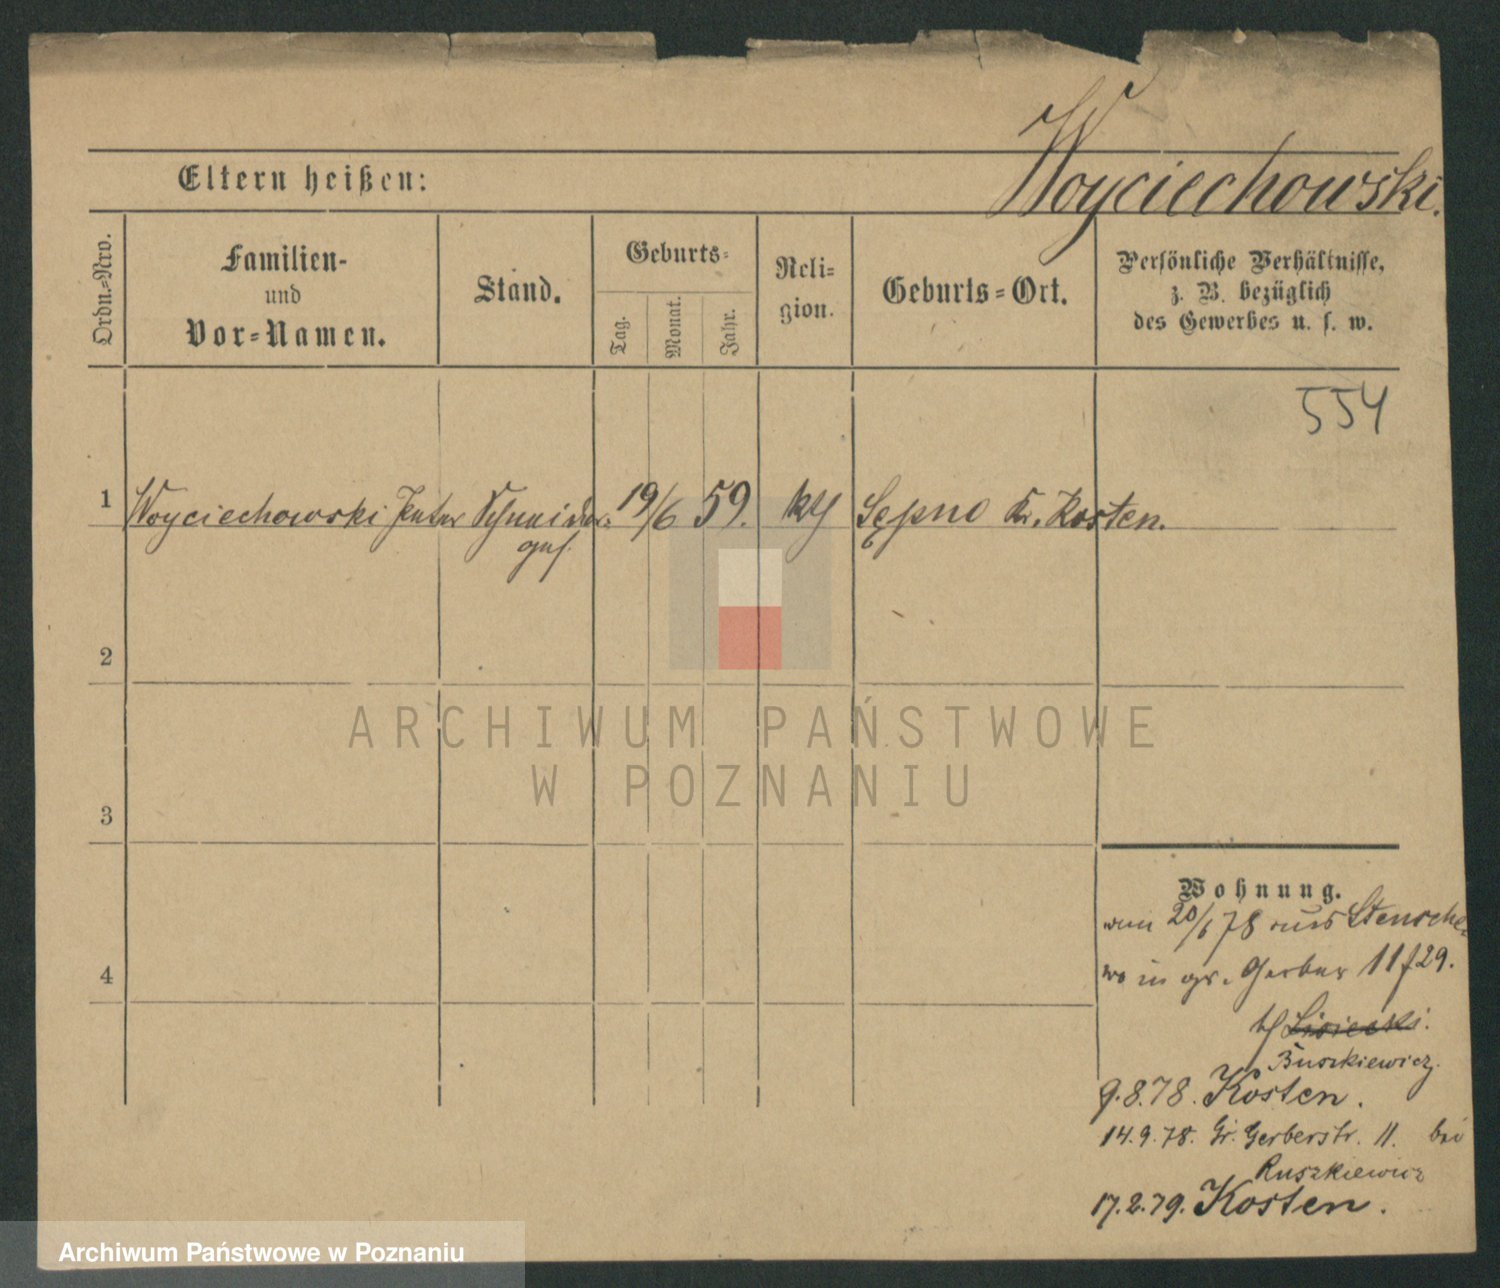 Woyciechowski.
Eltern heißen:
Ordn.=Nro.
Familien-
und
Vor=Namen.
Stand.
Geburts=
Tag.
Monat.
Jahr.
Reli=
gion.
Geburts=Ort.
Persönliche Verhältnisse,
z. B. bezüglich
des Gewerbes u. s. w.
554
1 Woyciechowski Peter Schneider= 19/6 59. kth Sępno Kr. Kosten.
ges.
2
ARCHIWUM PAŃSTWOWE
W POZNANIU
3
4
Wohnung.
20/6 78 aus Stensche
wo in gr. Gerber 11 f 29.
Lisiecki.
Buszkiewicz.
9.8.78. Kosten.
14.9.78. Gr. Gerberstr. 11. bei
Ruszkiewicz
17.2.79. Kosten.
Archiwum Państwowe w Poznaniu